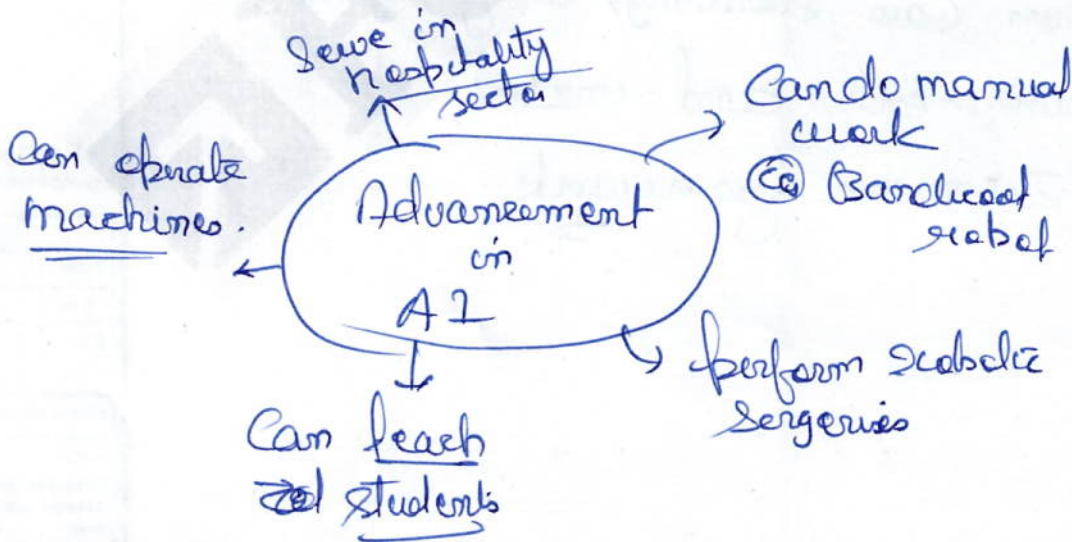 Serve in
hospitality
sector
Can do manual
work
eg Bandicoot
robot
Can operate
machines.
Advancement
in
AI
perform robotic
sergeries
Can teach
students